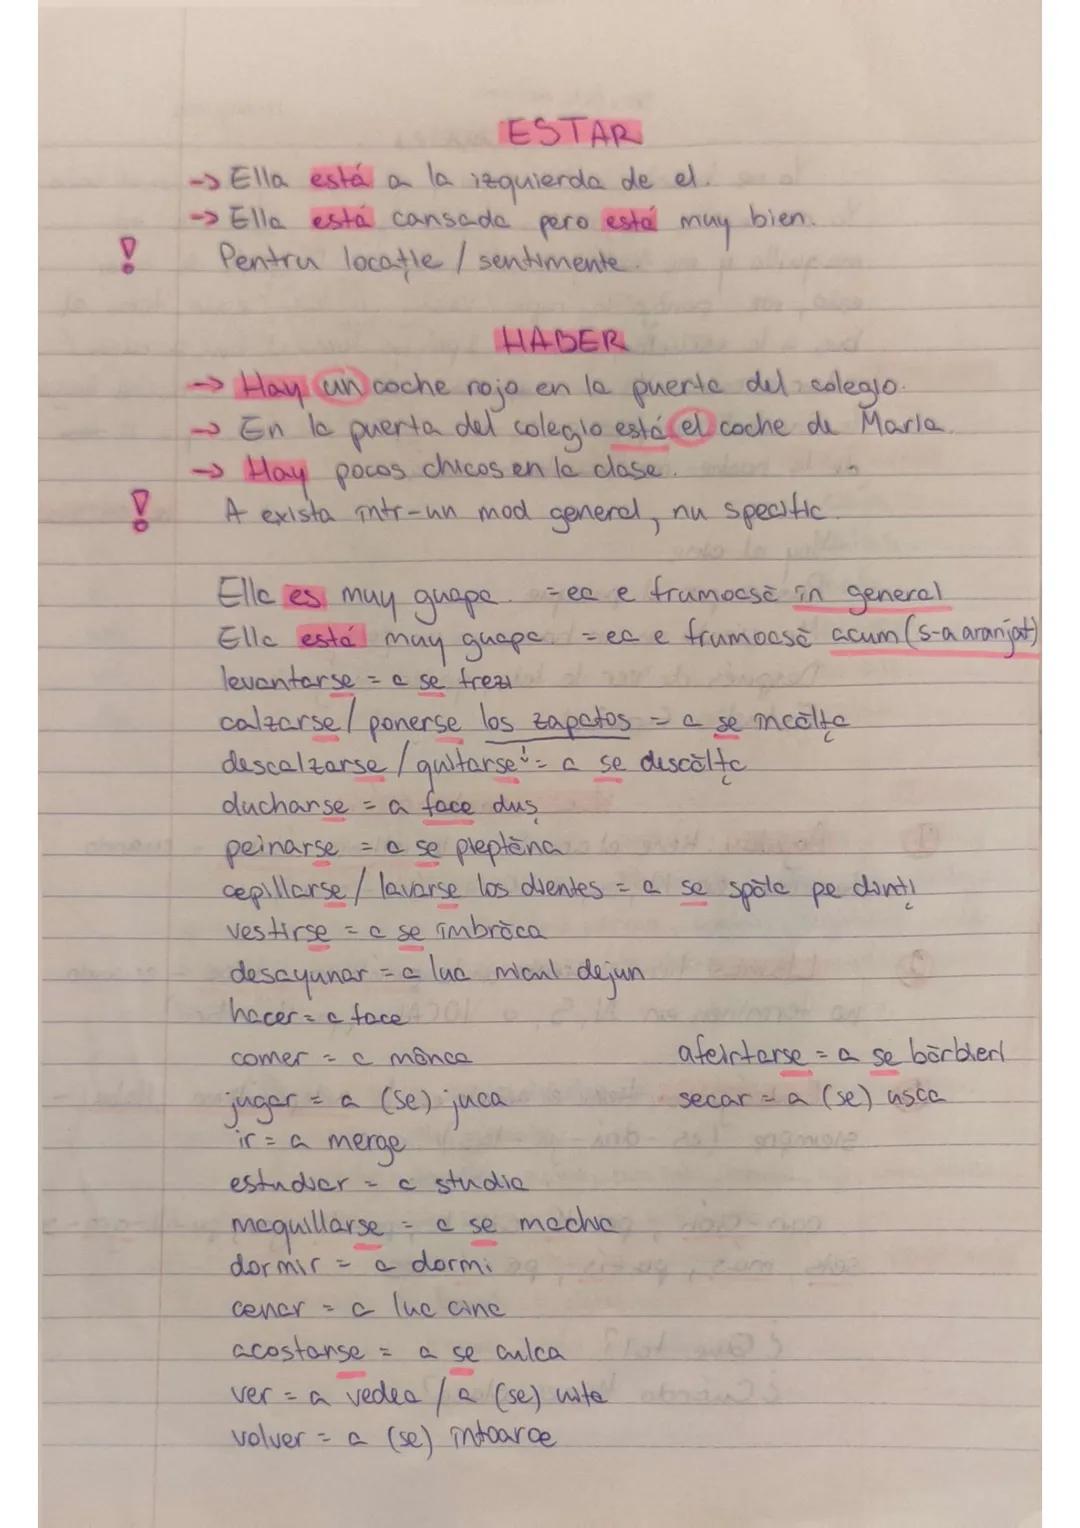 ESTAR
-> Ella está a la izquierda de el.
-> Ella está cansada pero está muy bien.
! Pentru locație / sentimente.
HABER
-> Hay un coche rojo en la puerta del colegio.
-> En la puerta del colegio está el coche de María.
-> Hay pocos chicos en la clase.
! A exista într-un mod general, nu specific.
Ella es muy guapa. = ea e frumoasă în general
Ella está muy guapa. = ea e frumoasă acum (s-a aranjat)
levantarse = a se trezi
calzarse / ponerse los zapatos = a se încălța
descalzarse / quitarse ↓ = a se descălța
ducharse = a face duș
peinarse = a se pieptăna
cepillarse / lavarse los dientes = a se spăla pe dinți
vestirse = a se îmbrăca
desayunar = a lua micul dejun
hacer = a face
comer = a mânca afeirtarse = a se bărbieri
jugar = a (se) juca secar = a (se) usca
ir = a merge
estudiar = a studia
maquillarse = a se machia
dormir = a dormi
cenar = a lua cina
acostarse = a se culca
ver = a vedea / a (se) uita
volver = a (se) întoarce